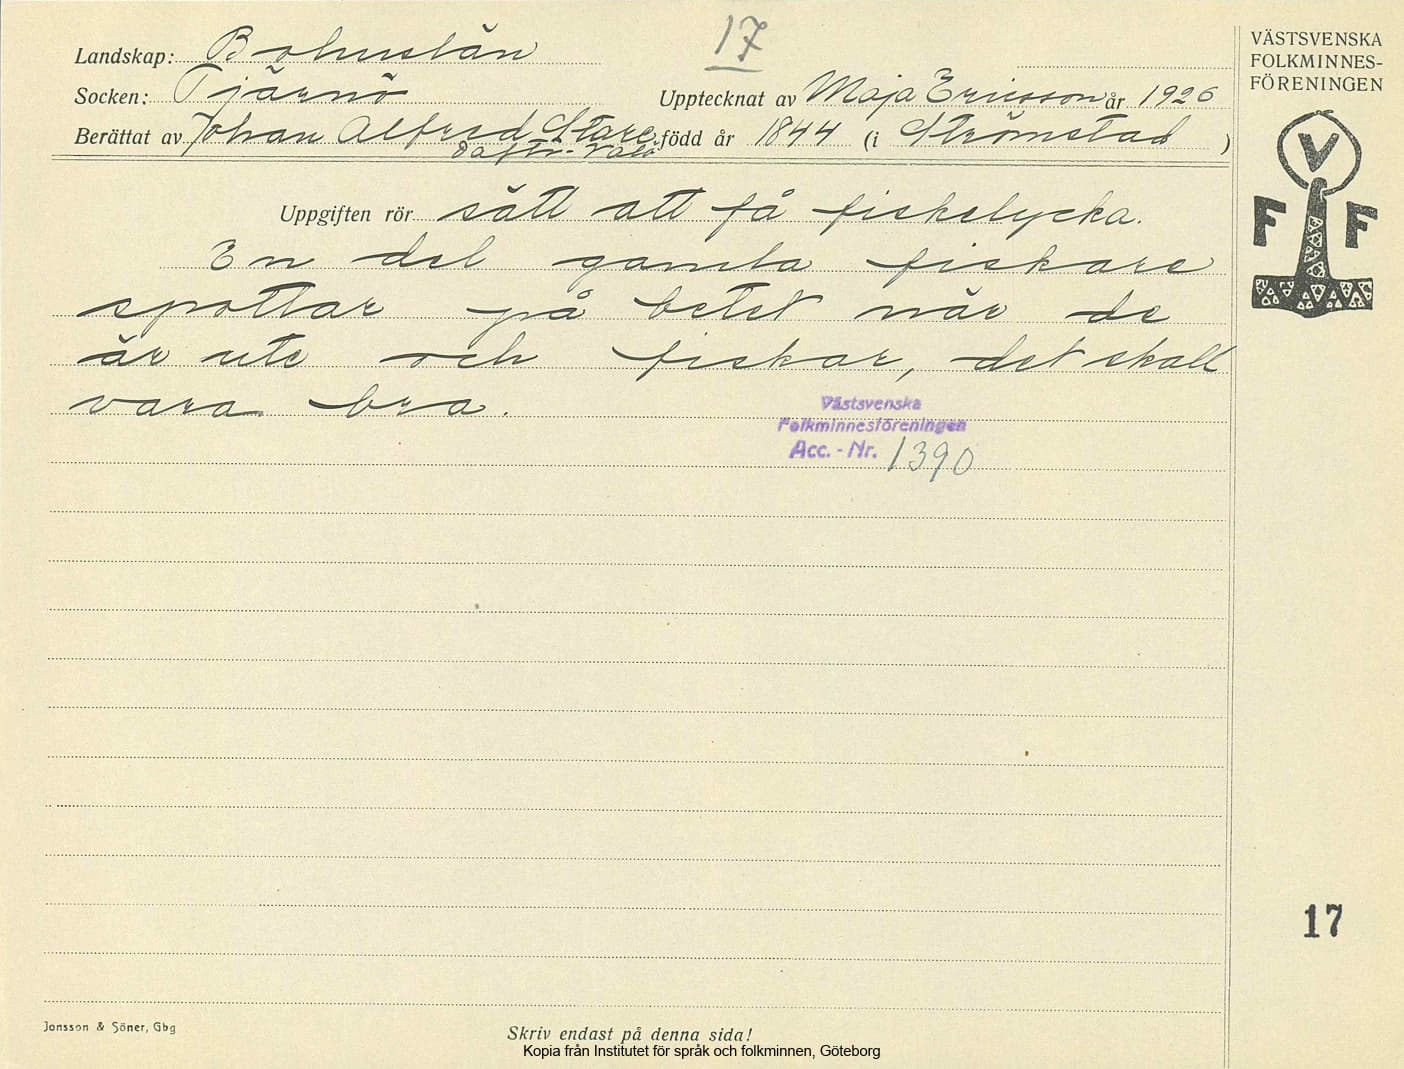 17
Landskap: Bohuslän
Socken: Tjärnö
Upptecknat av Maja Ericsson år 1926
Berättat av Johan Alfred Stare född år 1844 (i Strömstad )
Uppgiften rör sätt att få fiskelycka.
En del gamla fiskare
spottar på betet när de
är ute och fiskar, det skall
vara bra.
Västsvenska
Folkminnesföreningen
Acc. - Nr. 1390
VÄSTSVENSKA
FOLKMINNES-
FÖRENINGEN
V
F F
17
Jonsson & Söner, Gbg
Skriv endast på denna sida!
Kopia från Institutet för språk och folkminnen, Göteborg